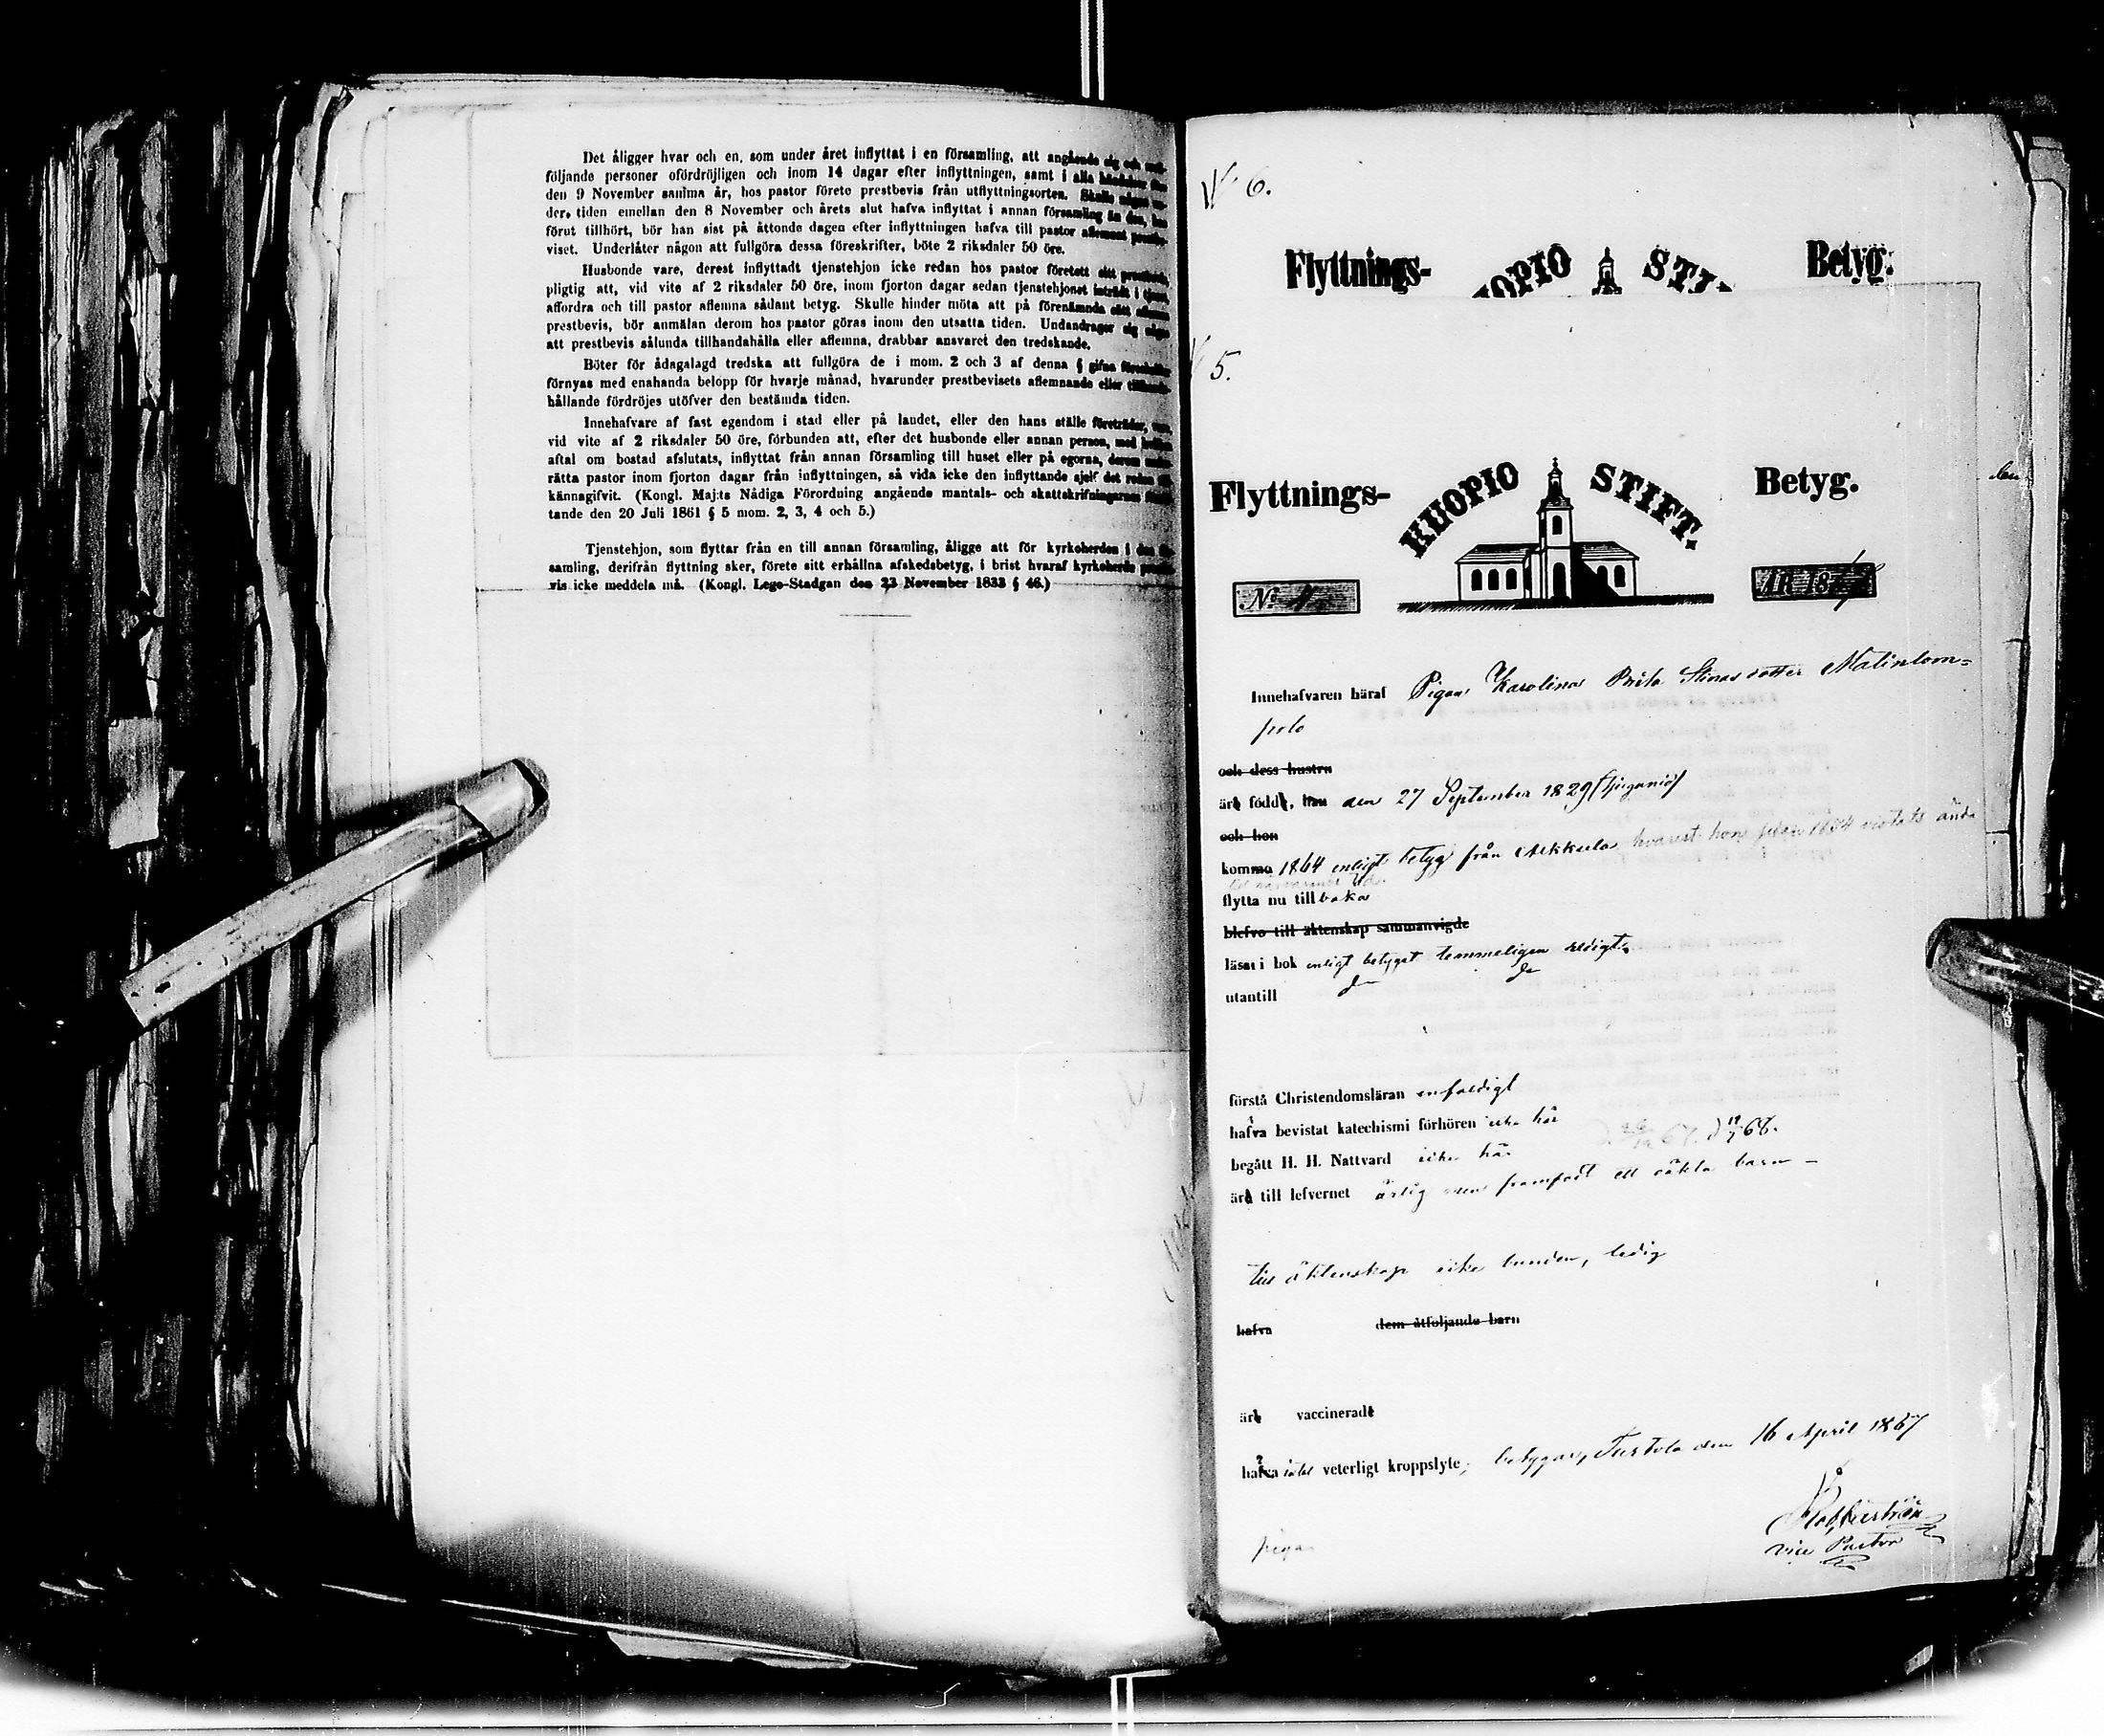 Det åligger hvar och en, som under året inflyttat i en församling, att angående sig och
följande personer ofördröjligen och inom 14 dagar efter inflyttningen, samt i alla händelser före
den 9 November samma år, hos pastor förete prestbevis från utflyttningsorten. Skulle någon un-
der tiden emellan den 8 November och årets slut hafva inflyttat i annan församling än den, han
förut tillhört, bör han sist på åttonde dagen efter inflyttningen hafva till pastor aflemnat prestbe-
viset. Underlåter någon att fullgöra dessa föreskrifter, böte 2 riksdaler 50 öre.
Husbonde vare, derest inflyttadt tjenstehjon icke redan hos pastor företett sitt prestbevis,
pligtig att, vid vite af 2 riksdaler 50 öre, inom fjorton dagar sedan tjenstehjonet inträdt i tjenst,
affordra och till pastor aflemna sådant betyg. Skulle hinder möta att på förenämnda sätt aflemna
prestbevis, bör anmälan derom hos pastor göras inom den utsatta tiden. Undandrager sig någon
att prestbevis sålunda tillhandahålla eller aflemna, drabbar ansvaret den tredskande.
Böter för ådagalagd tredska att fullgöra de i mom. 2 och 3 af denna § gifna föreskrifter
förnyas med enahanda belopp för hvarje månad, hvarunder prestbevisets aflemnande eller tillhanda-
hållande fördröjes utöfver den bestämda tiden.
Innehafvare af fast egendom i stad eller på landet, eller den hans ställe företräder, vare,
vid vite af 2 riksdaler 50 öre, förbunden att, efter det husbonde eller annan person, med hvilken
aftal om bostad afslutats, inflyttat från annan församling till huset eller på egorna, derom under-
rätta pastor inom fjorton dagar från inflyttningen, så vida icke den inflyttande sjelf det redan
kännagifvit. (Kongl. Maj:ts Nådiga Förordning angående mantals- och skattskrifningarnes förrät-
tande den 20 Juli 1861 § 5 mom. 2, 3, 4 och 5.)
Tjenstehjon, som flyttar från en till annan församling, åligge att för kyrkoherden i den för-
samling, derifrån flyttning sker, förete sitt erhållna afskedsbetyg, i brist hvaraf kyrkoherde prestbe-
vis icke meddela må. (Kongl. Lego-Stadgan den 23 November 1833 § 46.)
N 6.
Flyttnings- Betyg.
5.
Flyttnings- KUOPIO STIFT. Betyg.
No ÅR 18
Innehafvaren häraf Pigan Karolina Brita Stinasdotter Matinlom=
polo
och dess hustru
är född, han den 27 September 1829
och hon
komma 1864 enligt betyg från hvarest hon sedan 1854 vistats ända
flytta nu tillbaka
blefvo till äktenskap sammanvigde
läsa i bok enligt betyget temmeligen redigt
utantill do do
förstå Christendomsläran enfaldigt
hafva bevistat katechismi förhören icke här
begått H. H. Nattvard icke här
är till lefvernet ärlig men framfödt ett oäkta barn –
till äktenskap icke bunden, ledig
hafva dem åtföljande barn
är vaccinerad
hafva intet veterligt kroppslyte, betygar, Turtola den 16 April 1867
vice Pastor
piga